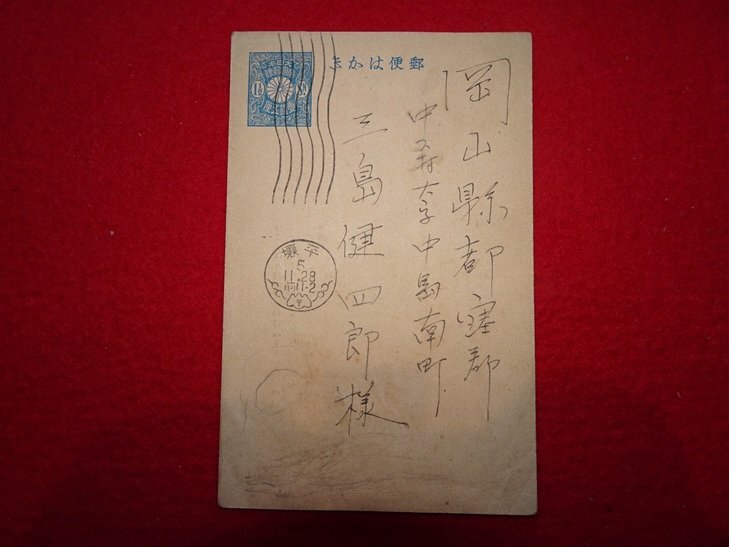 郵便はかき
岡山縣都窪郡
中洲村大字中島南町
三島健四郎様
1½
平壤
5
11.28
前11-2